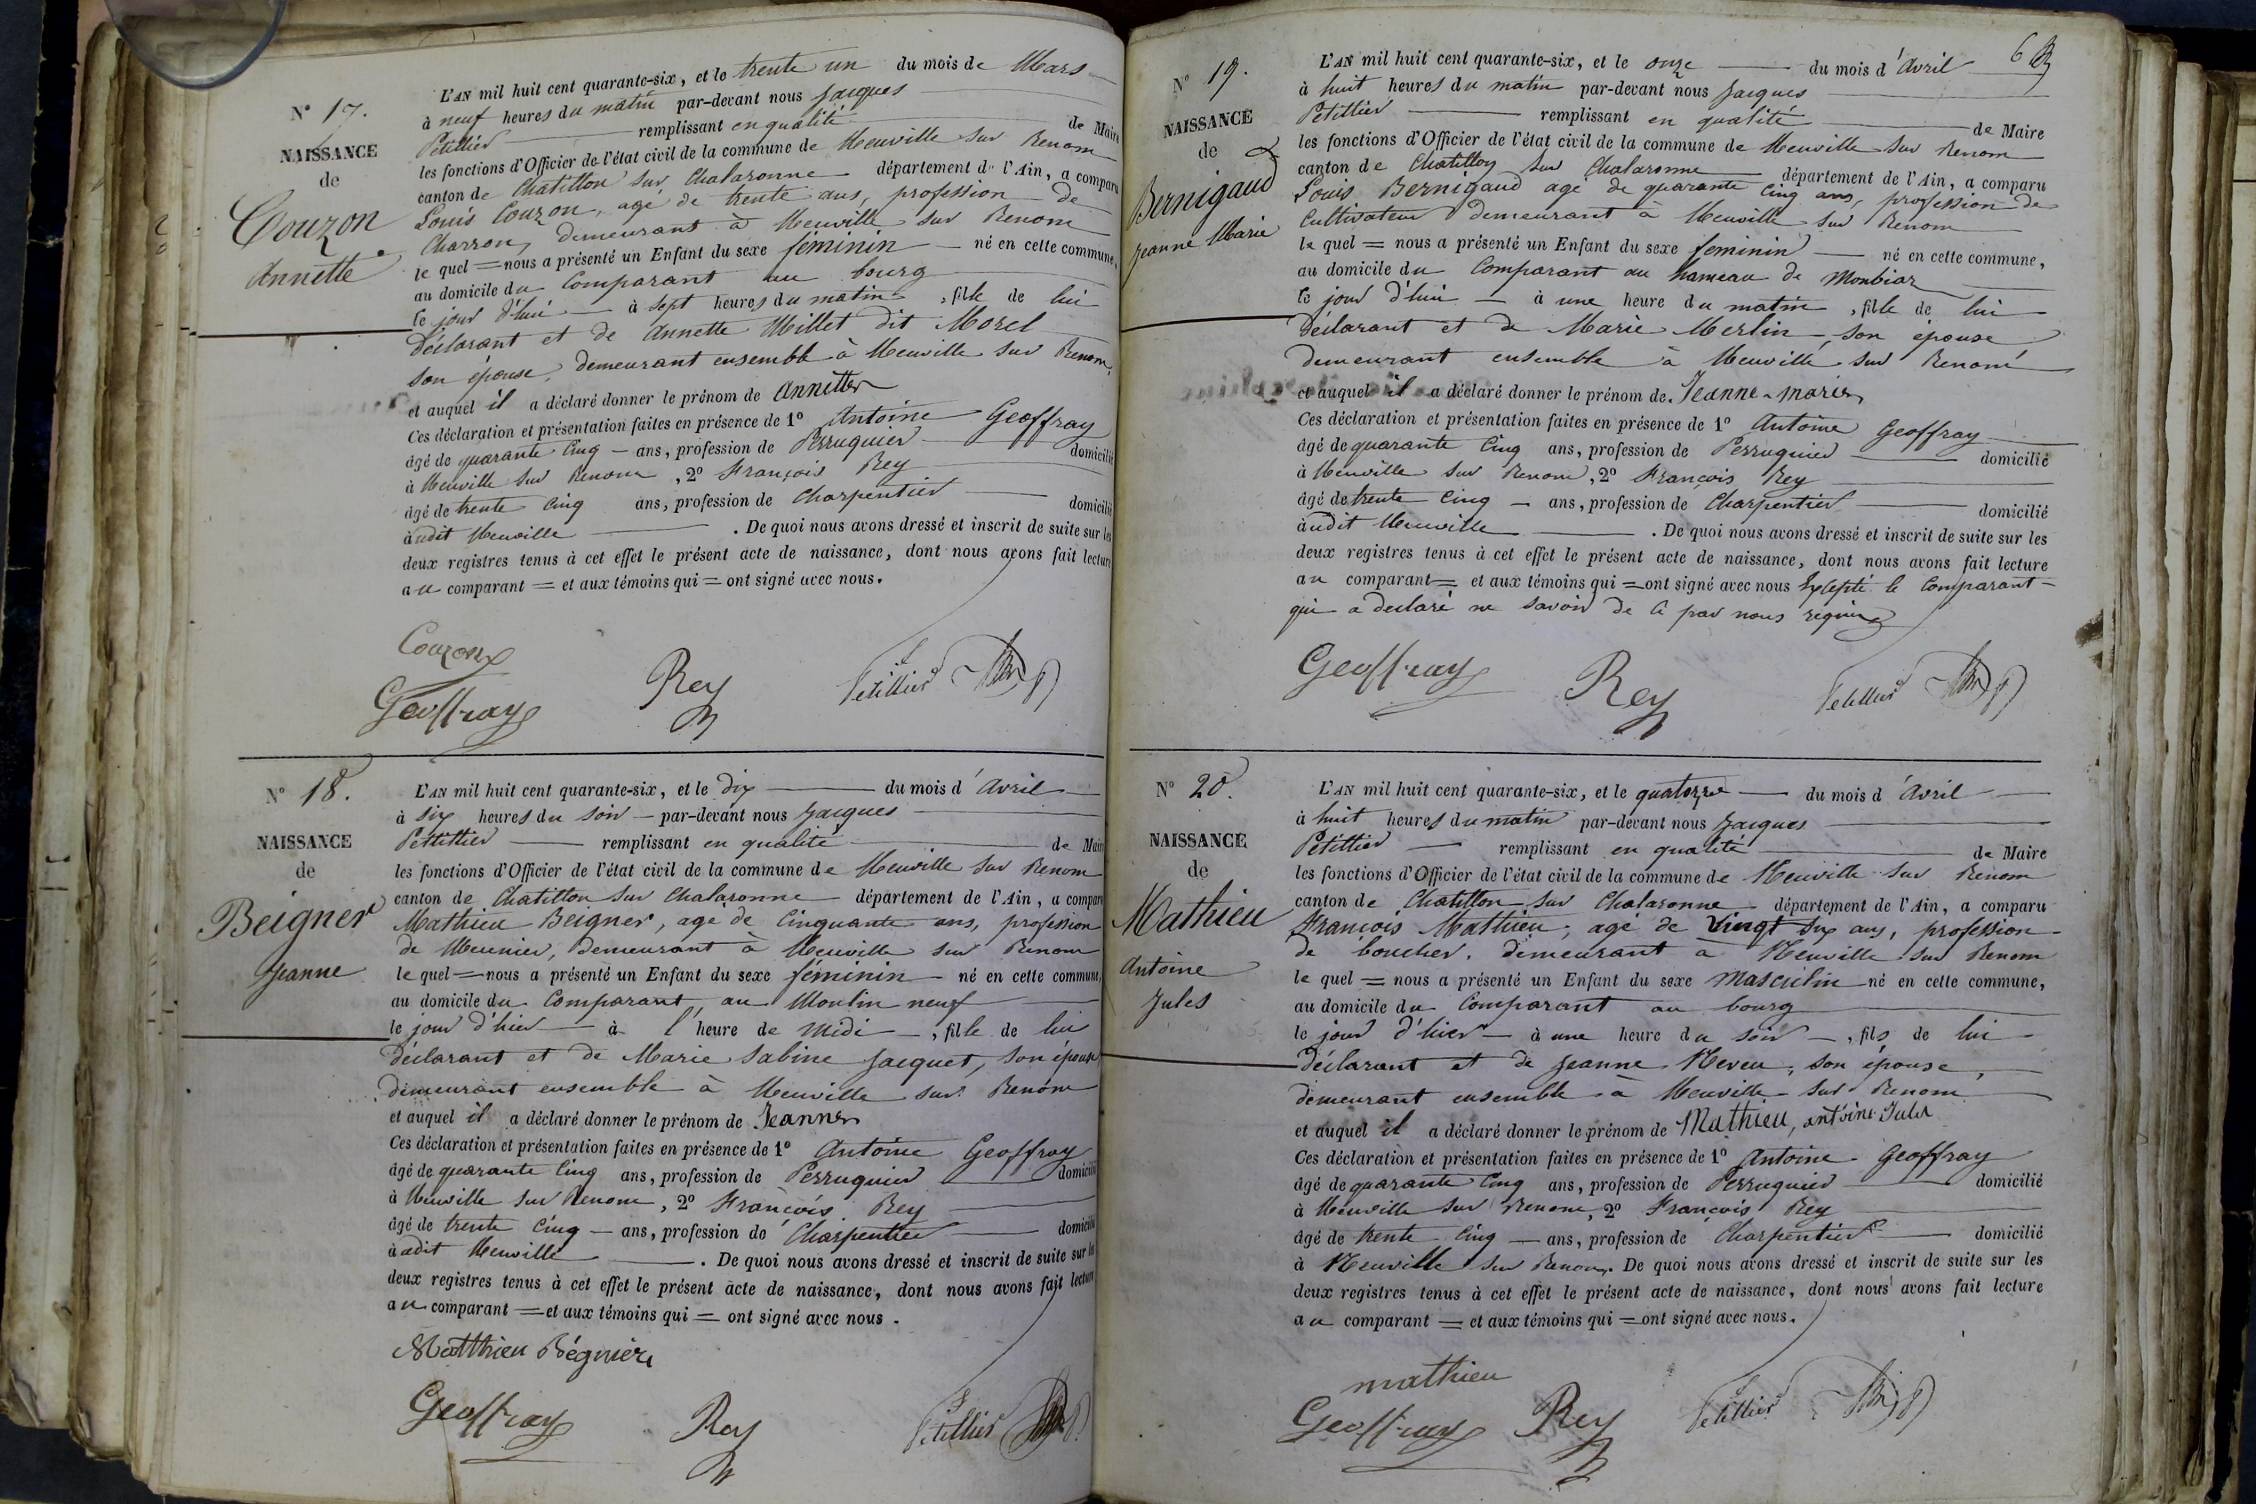 N° 17.
NAISSANCE
de
Couzon
Annette
L'AN mil huit cent quarante-six, et le trente un du mois de Mars
à neuf heures du matin par-devant nous Jacques
Petittier remplissant en qualité de Maire
les fonctions d'Officier de l'état civil de la commune de Neuville sur Renom
canton de Chatillon sur Chalaronne département de l'Ain, a comparu
Louis Couzon, agé de trente ans, profession de
Charron, demeurant à Neuville sur Renom
le quel = nous a présenté un Enfant du sexe féminin né en cette commune,
au domicile du Comparant au bourg
le jour d'hui à sept heures du matin, fille de lui
déclarant et de Annette Millet dit Morel
son épouse, demeurant ensemble à Neuville sur Renom,
et auquel il a déclaré donner le prénom de Annette
Ces déclaration et présentation faites en présence de 1° Antoine Geoffray
âgé de quarante Cinq ans, profession de Perruquier domicilié
à Neuville sur Renom, 2° François Rey
âgé de trente Cinq ans, profession de Charpentier domicilié
àudit Neuville. De quoi nous avons dressé et inscrit de suite sur les
deux registres tenus à cet effet le présent acte de naissance, dont nous avons fait lecture
au comparant = et aux témoins qui = ont signé avec nous.
Couzon
Geoffray Rey Petittier
N° 18.
NAISSANCE
de
Beigner
Jeanne
L'AN mil huit cent quarante-six, et le dix du mois d'Avril
à six heures du soir par-devant nous Jacques
Petittier remplissant en qualité de Maire
les fonctions d'Officier de l'état civil de la commune de Neuville sur Renom
canton de Chatillon sur Chalaronne département de l'Ain, a comparu
Mathieu Beigner, agé de Cinquante ans, profession
de Meunier, demeurant à Neuville sur Renom
le quel = nous a présenté un Enfant du sexe féminin né en cette commune,
au domicile du Comparant, au Moulin neuf
le jour d'hier à l'heure de midi, fille de lui
déclarant et de Marie Sabine Jacquet, son épouse
demeurant ensemble à Neuville sur Renom
et auquel il a déclaré donner le prénom de Jeanne
Ces déclaration et présentation faites en présence de 1° Antoine Geoffray
âgé de quarante Cinq ans, profession de Perruquier domicilié
à Neuville sur Renom, 2° François Rey
âgé de trente Cinq ans, profession de Charpentier domicilié
àudit Neuville. De quoi nous avons dressé et inscrit de suite sur les
deux registres tenus à cet effet le présent acte de naissance, dont nous avons fait lecture
au comparant = et aux témoins qui = ont signé avec nous.
Matthieu Bégnier
Geoffray Rey Petittier
6
N° 19.
NAISSANCE
de
Bernigaud
Jeanne Marie
L'AN mil huit cent quarante-six, et le onze du mois d'Avril
à huit heures du matin par-devant nous Jacques
Petittier remplissant en qualité de Maire
les fonctions d'Officier de l'état civil de la commune de Neuville sur Renom
canton de Chatillon sur Chalaronne département de l'Ain, a comparu
Louis Bernigaud agé de quarante Cinq ans, profession de
Cultivateur demeurant à Neuville sur Renom
le quel = nous a présenté un Enfant du sexe feminin né en cette commune,
au domicile du Comparant au hameau de Monbiar
le jour d'hui à une heure du matin, fille de lui
déclarant et de Marie Merlin, son épouse
demeurant ensemble à Neuville sur Renom
et auquel il a déclaré donner le prénom de Jeanne-marie
Ces déclaration et présentation faites en présence de 1° Antoine Geoffray
âgé de quarante Cinq ans, profession de Perruquier domicilié
à Neuville sur Renom, 2° François Rey
âgé de trente Cinq ans, profession de Charpentier domicilié
àudit Neuville. De quoi nous avons dressé et inscrit de suite sur les
deux registres tenus à cet effet le présent acte de naissance, dont nous avons fait lecture
au comparant = et aux témoins qui = ont signé avec nous Excepté le Comparant
qui a declaré ne savoir de ce par nous requis
Geoffray Rey Petittier
N° 20.
NAISSANCE
de
Mathieu
Antoine
Jules
L'AN mil huit cent quarante-six, et le quatorze du mois d'Avril
à huit heures du matin par-devant nous Jacques
Petittier remplissant en qualité de Maire
les fonctions d'Officier de l'état civil de la commune de Neuville sur Renom
canton de Chatillon sur Chalaronne département de l'Ain, a comparu
François Mathieu, agé de vingt six ans, profession
de boucher, demeurant à Neuville sur Renom
le quel = nous a présenté un Enfant du sexe Masculin né en cette commune,
au domicile du Comparant au bourg
le jour d'hier à une heure du soir, fils de lui
déclarant et de Jeanne Neveu, son épouse,
demeurant ensemble à Neuville sur Renom
et auquel il a déclaré donner le prénom de Mathieu, antoine Jules
Ces déclaration et présentation faites en présence de 1° Antoine Geoffray
âgé de quarante Cinq ans, profession de Perruquier domicilié
à Neuville sur Renom, 2° François Rey
âgé de trente Cinq ans, profession de Charpentier domicilié
à Neuville sur Renom. De quoi nous avons dressé et inscrit de suite sur les
deux registres tenus à cet effet le présent acte de naissance, dont nous avons fait lecture
au comparant = et aux témoins qui = ont signé avec nous.
mathieu
Geoffray Rey Petittier